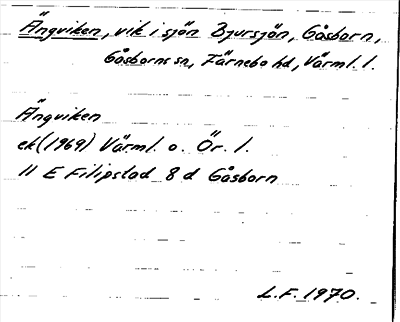 Ängviken, vik i sjön Bjursjön, Gåsborn,
Gåsborns sn, Färnebo hd, Värml. l.
Ängviken
ek (1969) Värml. o. Ör. l.
11 E Filipstad 8 d Gåsborn
L.F. 1970.